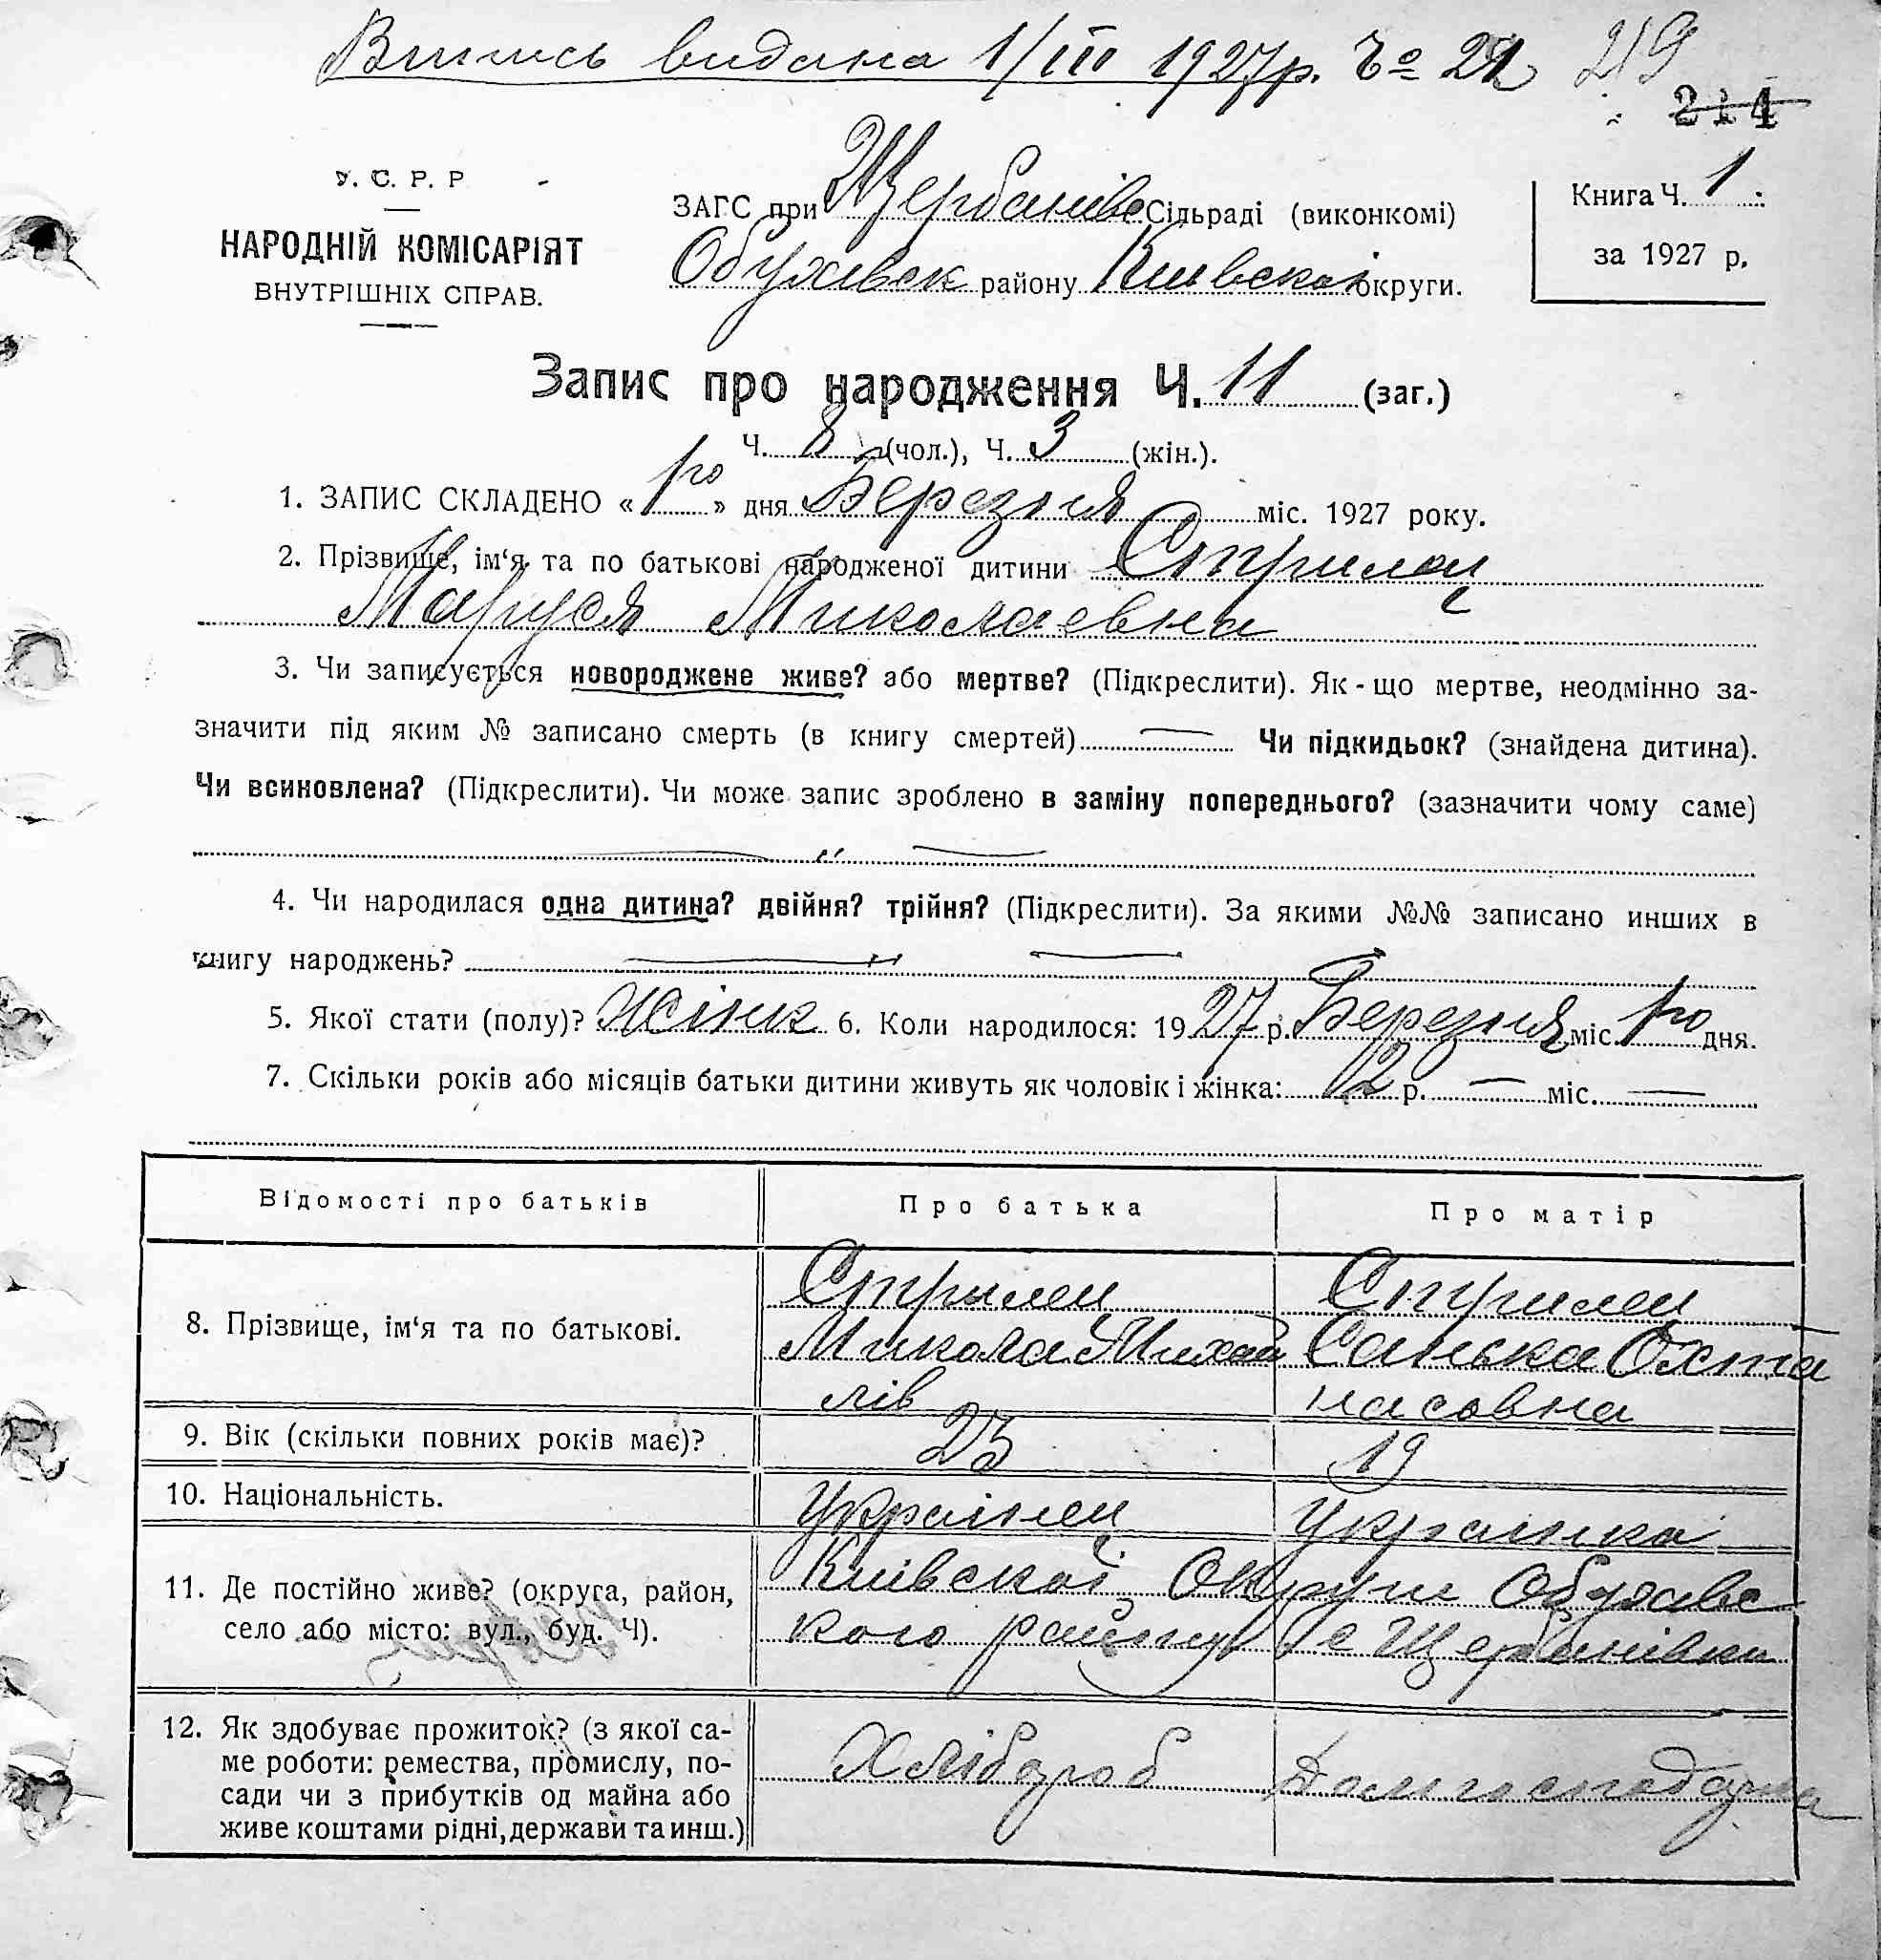 Випись видана 1/III 1927 р. Чо 219
214
У. С. Р. Р
НАРОДНІЙ КОМІСАРІЯТ
ВНУТРІШНІХ СПРАВ.
ЗАГС при Щербанівс Сільраді (виконкомі)
Обухівськ району Київської округи.
Книга Ч. 1
за 1927 р.
Запис про народження Ч. 11 (заг.)
Ч. 8 (чол.), Ч. 3 (жін.).
1. ЗАПИС СКЛАДЕНО « 1го » дня Березня міс. 1927 року.
2. Прізвище, ім‘я та по батькові народженої дитини Стрилец
Маруся Миколаевна
3. Чи записується новороджене живе? або мертве? (Підкреслити). Як-що мертве, неодмінно за-
значити під яким № записано смерть (в книгу смертей) — Чи підкидьок? (знайдена дитина).
Чи всиновлена? (Підкреслити). Чи може запис зроблено в заміну попереднього? (зазначити чому саме)
— " —
4. Чи народилася одна дитина? двійня? трійня? (Підкреслити). За якими №№ записано инших в
книгу народжень? — " —
5. Якої стати (полу)? Жінк 6. Коли народилося: 1927 р. Березня міс. 1го дня.
7. Скільки років або місяців батьки дитини живуть як чоловік і жінка: 2 р. — міс. —
Відомості про батьків Про батька Про матір
8. Прізвище, ім‘я та по батькові.
Стрилец
Микола Михай
лів
Стрилец
Санька Охта
насовна
9. Вік (скільки повних років має)? 25 19
10. Національність. Українец Українка
11. Де постійно живе? (округа, район,
село або місто: вул., буд. Ч).
Київскої Округи Обухівс
кого району с Щербанівки
12. Як здобуває прожиток? (з якої са-
ме роботи: ремества, промислу, по-
сади чи з прибутків од майна або
живе коштами рідні, держави та инш.)
Хлібороб Домгосподарка